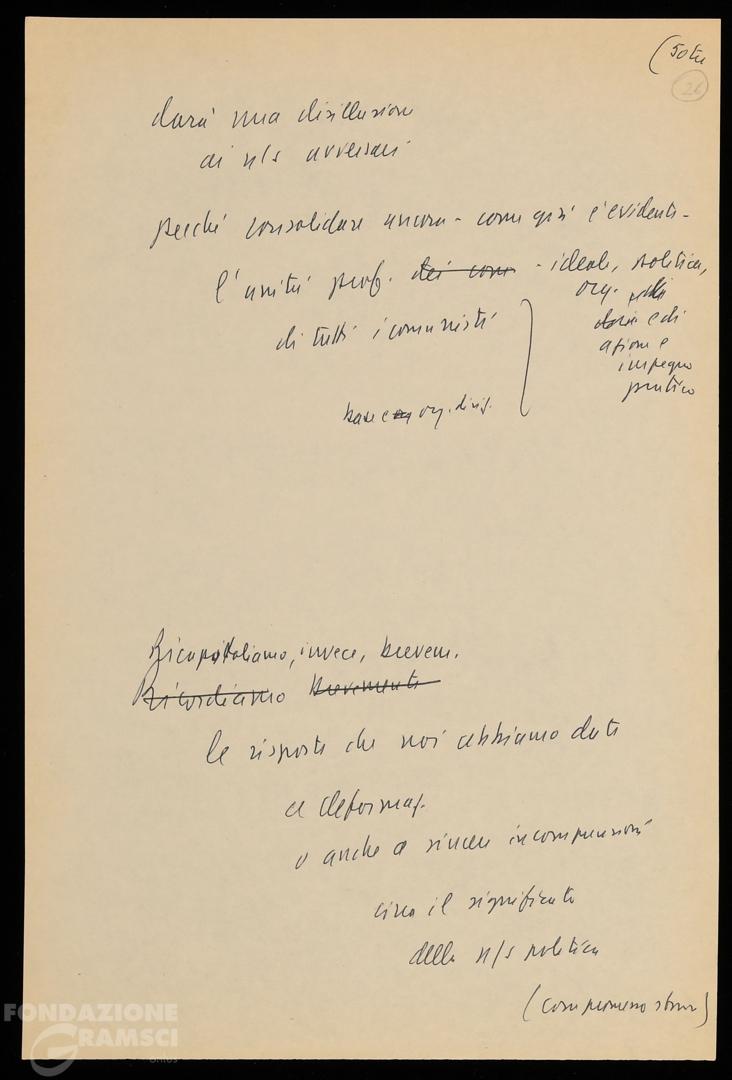 26
darà una disillusione
ai n/s avversari
perché consolidare ancora - come già è evidente -
l'unità prof. dei com - ideale, politica,
org. e di
azione e
impegno
pratico
di tutti i comunisti
base e org. dirig.
Ricapitoliamo, invece, brevem.
Ricordiamo brevemente
le risposte che noi abbiamo date
a deformaz.
o anche a sincere incomprensioni
circa il significato
della n/s politica
(compromesso stor)
FONDAZIONE
GRAMSCI
onlus